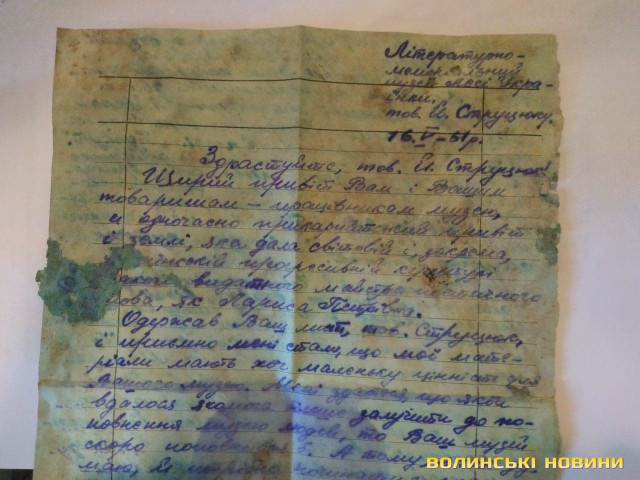 Літературно-
меморіальний
музей Лесі Укра-
їнки.
тов. Й. Струцюку.
16.V-61р.
Здрастуйте, тов. Й. Струцюк!
Щирий привіт Вам і Вашим
товаришам - працівникам музею,
а одночасно прикарпатський привіт
і землі, яка дала світовій і, зокрема,
прогресивній культурі
такого видатного майстра поетичного
слова, як Лариса Петрівна.
Одержав Ваш лист, тов. Струцюк,
і приємно мені стало, що мої мате-
ріали мають хоч маленьку цінність для
Вашого музею. Мені здалося, що якби
вдалося якомога більше залучити до по-
повнення музею людей, то Ваш музей
скоро поповнився б. А тому
маю,
ВОЛИНСЬКІ НОВИНИ